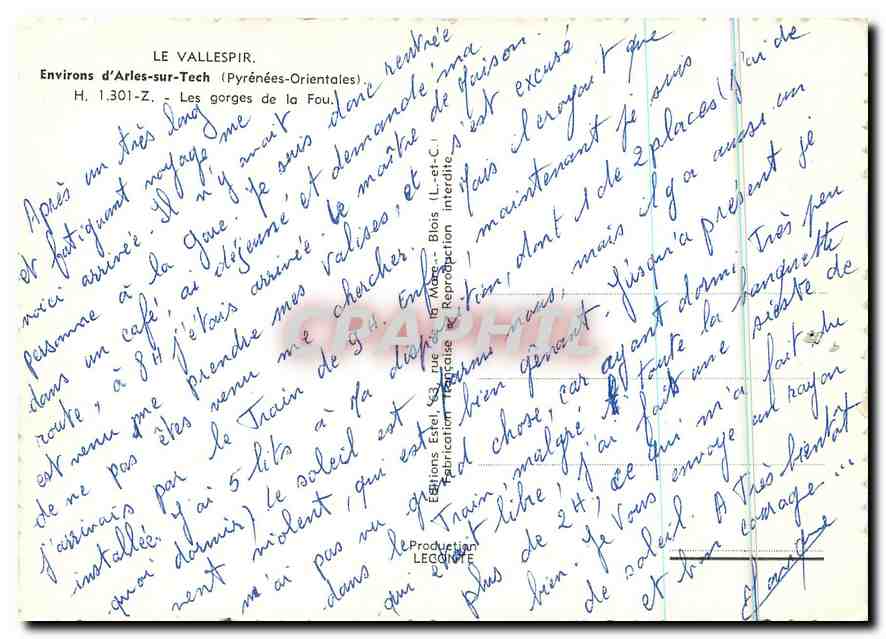 LE VALLESPIR.
Environs d'Arles-sur-Tech (Pyrénées-Orientales)
H. 1.301-Z. - Les gorges de la Fou.
Après un très long
et fatiguant voyage me
voici arrivée. Il n'y avait
personne à la gare. Je suis donc rentrée
dans un café, ai déjeuné et demandé ma
route, à 8H j'étais arrivée. Le maître de maison
est venu me prendre mes valises, et s'est excusé
de ne pas êtes venu me chercher. Mais il croyait que
j'arrivais par le Train de 9H. Enfin, maintenant je suis
installée. J'ai 5 lits à ma disposition, dont 1 de 2 places (j'ai de
quoi dormir) Le soleil est parmi nous, mais il y a aussi un
vent violent, qui est bien gênant. Jusqu'à présent je
n'ai pas vu grand chose, car ayant dormi Très peu
dans le Train, malgré toute la banquette
qui était libre, j'ai fait une sieste de
plus de 2H, ce qui m'a fait du
bien. Je Vous envoye un rayon
de soleil. A Très bientôt
et bon courage...
Editions Estel, 63, rue de la Mare - Blois (L.-et-C.)
Fabrication française et Reproduction interdite
Production
LECONTE
CPAPHIL